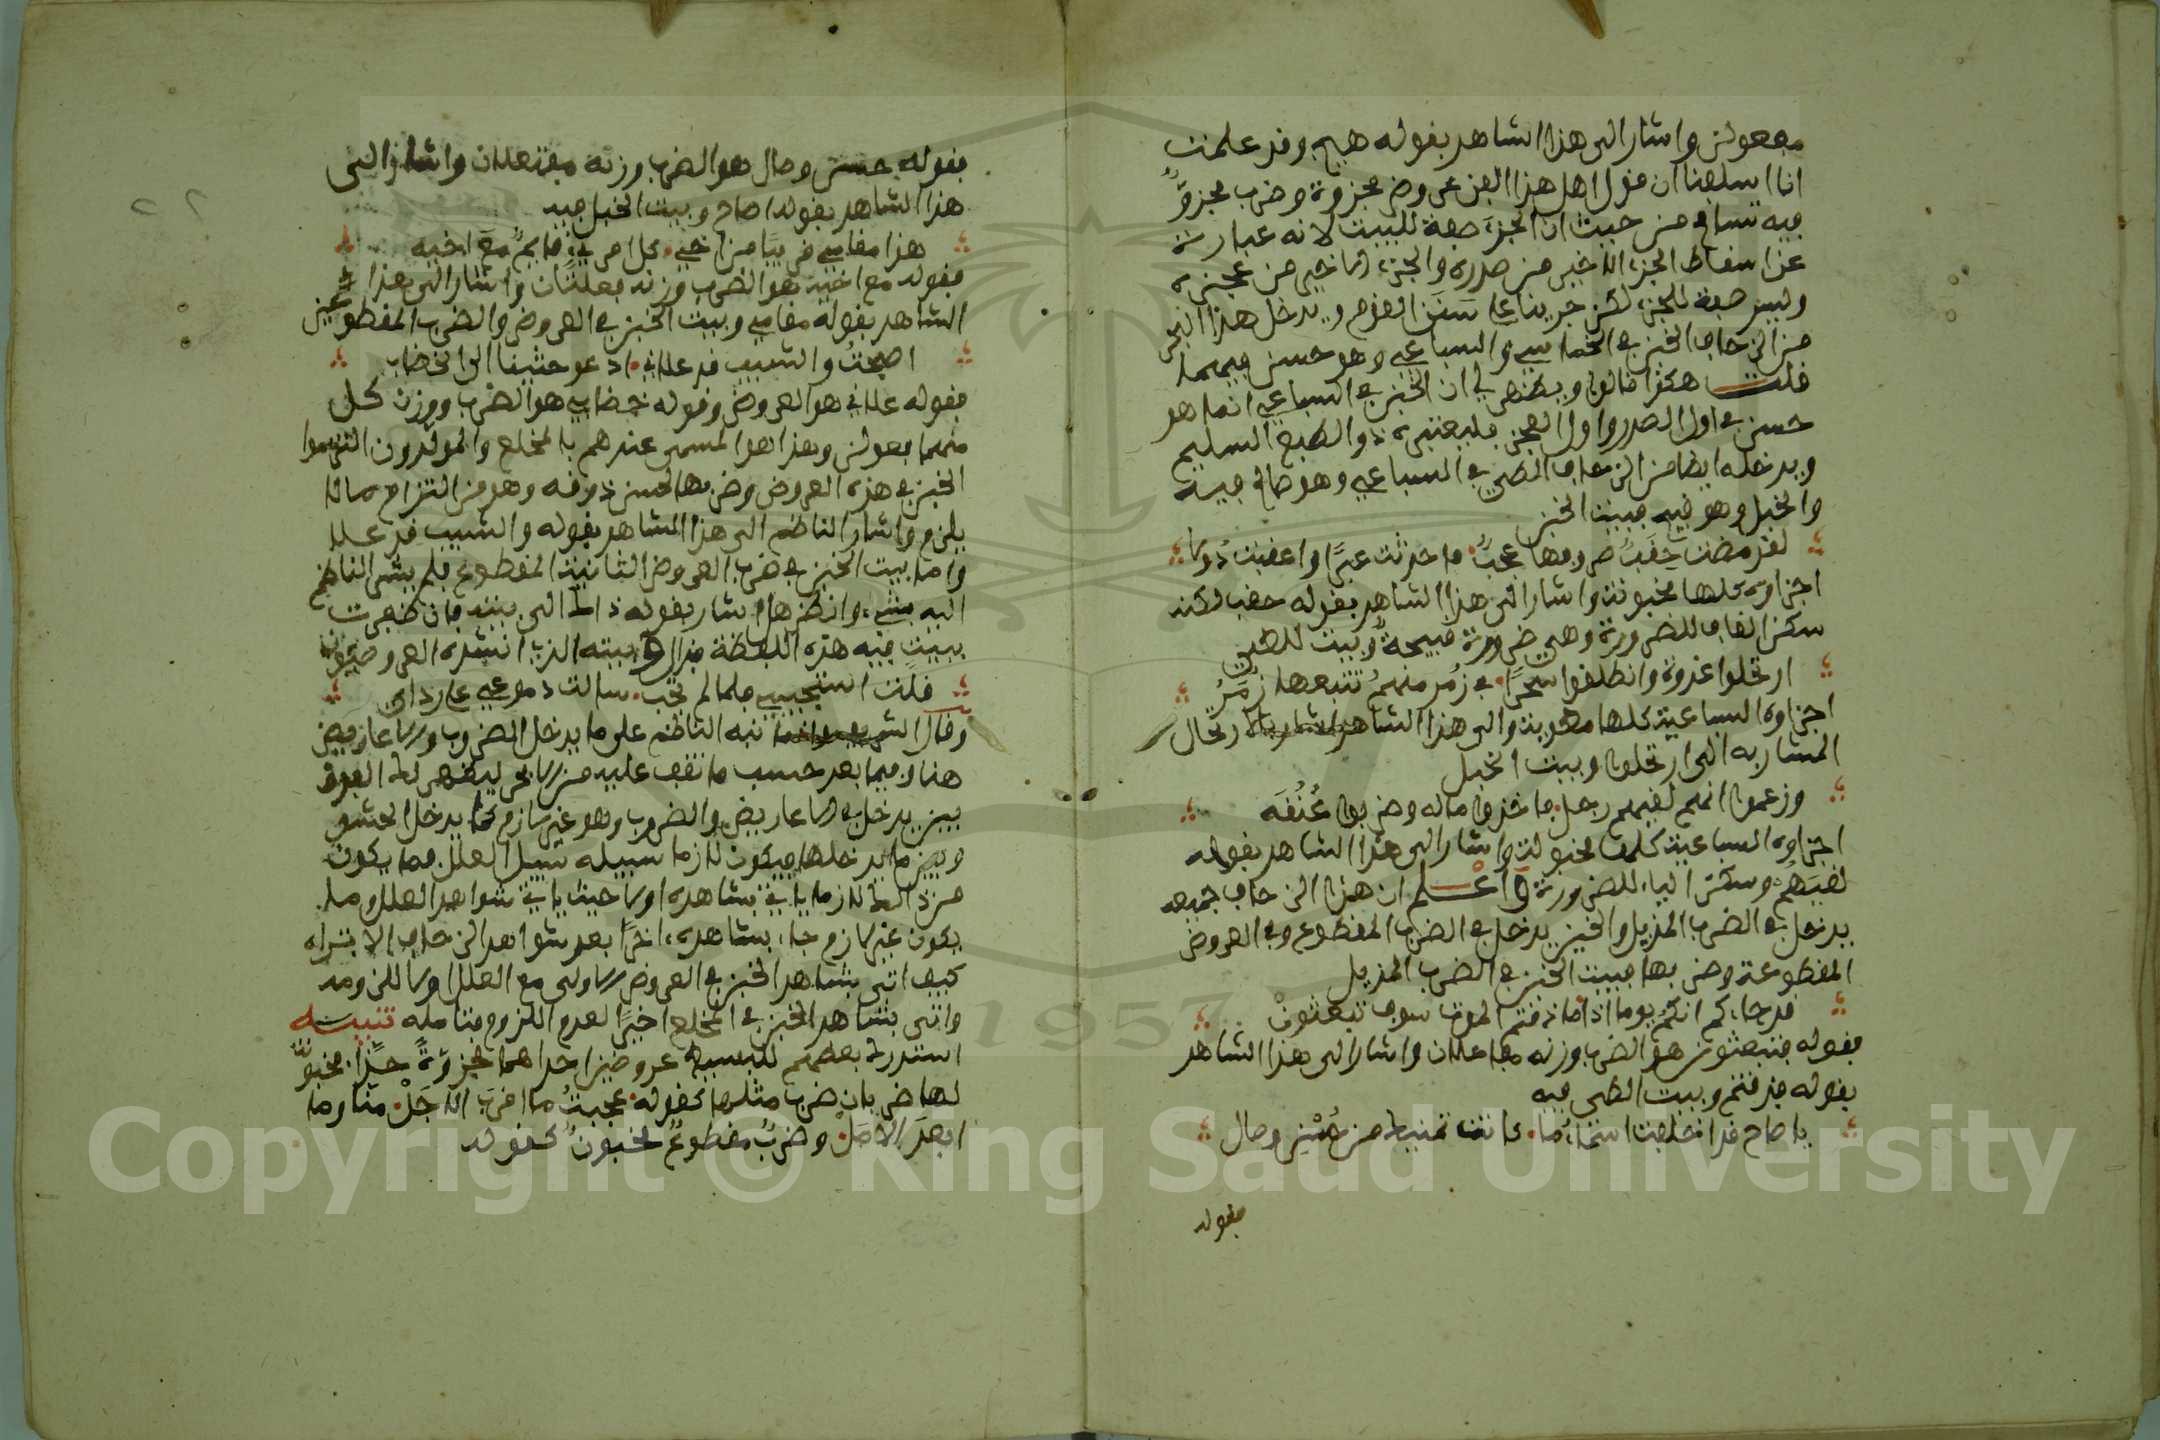 مفعولن واشار الى هذا الشاهد بقوله هيج وقد علمت
انا اسلفنا ان قول اهل هذا الفن عروض مجزوة وضرب مجزوٌّ
فيه تسامح من حيث ان الجزء صفة للبيت لانه عبارة
عن اسقاط الجزء الاخير من صدره والجزء الاخير من عجزه
وليس صفة للجزء لكن جرينا على سَنَن القوم ويدخل هذا البحر
من الزحاف الخبن في الخماسي والسباعي وهو حسن فيهما
قلت هكذا قالوا ويظهر لي ان الخبن في السباعي انما هو
حسن في اول الصدر واول العجز فليعتبره ذو الطبع السليم
ويدخله ايضا من الزحاف الطي في السباعي وهو صالح فيه
والخبل وهو فيه فبيت الخبن
لقد مضت حِقَبٌ صروفها عجبٌ ما حدثت عبرًا واعقبت دُولا
اجزاوه كلها مخبونة واشار الى هذا الشاهد بقوله حقب لكنه
سكن القاف للضرورة وهي ضرورة قبيحةٌ وبيت للطي
ارتحلوا غدوة وانطلقوا سحرًا في زُمر منهمُ تتبعها زُمَرُ
اجزاوه السباعية كلها مطوية والى هذا الشاهد اشار بالارتحال
المشار به الى ارتحلوا وبيت الخبل
وزعموا انهم لقيهم رجل فاخذوا ماله وضربوا عُنُقَه
اجزاوه السباعية كلها مخبولة واشار الى هذا الشاهد بقوله
لقيَهُمُ وسكن الياء للضرورة واعْلم ان هذا الزحاف جميعه
يدخل في الضرب المذيل والخبن يدخل في الضرب المقطوع وفي العروض
المقطوعة وضربها فبيت الخبن في الضرب المذيل
قد جاءكم انكمُ يوما اذا ما ذقتم الموت سوف تبعثونْ
فقوله فتبعثون هو الضرب وزنه مفاعلان واشار الى هذا الشاهد
بقوله فذقتم وبيت الطي فيه
يا صاح قد اخلفت اسماءُ ما كانت تمنيك من حُسْنِ وصال
فقوله
بقوله حسن وصال هو الضرب وزنه مفتعلان واشار الى
هذا الشاهد بقوله اصاح وبيت الخبل فيه
هذا مقامي قريبًا من اخي كل امرئ قايمٌ مع اخيه
فقوله مع اخيه هو الضرب وزنه فعلتان واشار الى هذا
الشاهد بقوله مقامي وبيت الخبن في العروض والضرب المقطوعين
اصبحتُ والشيب قد علاني ادعو حثيثا الى الخضاب
فقوله علاني هو العروض وقوله خضابي هو الضرب ووزن كل
منهما فعولن وهذا هو المسمى عندهم بالمخلع والمولدون التزموا
الخبن في هذه العروض وضربها لحسن ذوقه وهو من التزام ما لا
يلزم واشار الناظم الى هذا الشاهد بقوله والشيب قد علا
واما بيت الخبن في ضرب العروض الثانية المقطوع فلم يشر الناظم
اليه بشيء وانظر هل اشار بقوله ذاك الى بيته فان ظفرت
ببيت فيه هذه اللفظة فذاك وبيته الذي انشده العروضيون
قلت استجيبي فلما لم تجب سالت دموعي على رداي
وقال الشريف انما نبه الناظم على ما يدخل الضروب والاعاريض
هنا وفيما بعد حسب ما تقف عليه من الابحر ليظهر لك الفرق
بين يدخل في الاعاريض والضروب وهو غير لازم كما يدخل الحشو
وبين ما يدخلها فيكون لازما سبيله سبيل العلل فما يكون
من ذلك لازما ياتي بشاهده اولا حيث ياتي شواهد العلل وما
يكون غير لازم جاء بشاهده اخرًا بعد شواهد الزحاف الا تراه
كيف اتى بشاهد الخبن في العروض الاولى مع العلل اولا للزومه
واتى بشاهد الخبن في المخلع اخيرًا لعدم اللزوم فتامله تنبيه
استدرك بعضهم للبسيط عروضين احداهما مجزوةٌ حذاء مخبونة
لها ضربان ضرب مثلها كقوله عجبتُ ما اقربَ الاجَلْ منا وما
ابعدَ الامَلْ وضربٌ مقطوعٌ مخبونٌ كقوله